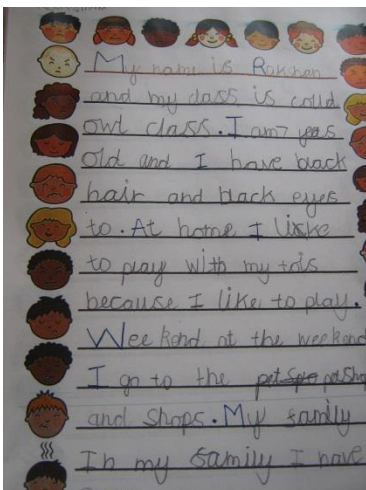 My name is Rakshan
and my class is colld
owl class. I am 7 yeas
old and I have back
hair and black eyes
to. At home I liske
to play with my tois
because I like to play.
Weekend at the weekend
I go to the petshop
and shops. My family
In my family I have